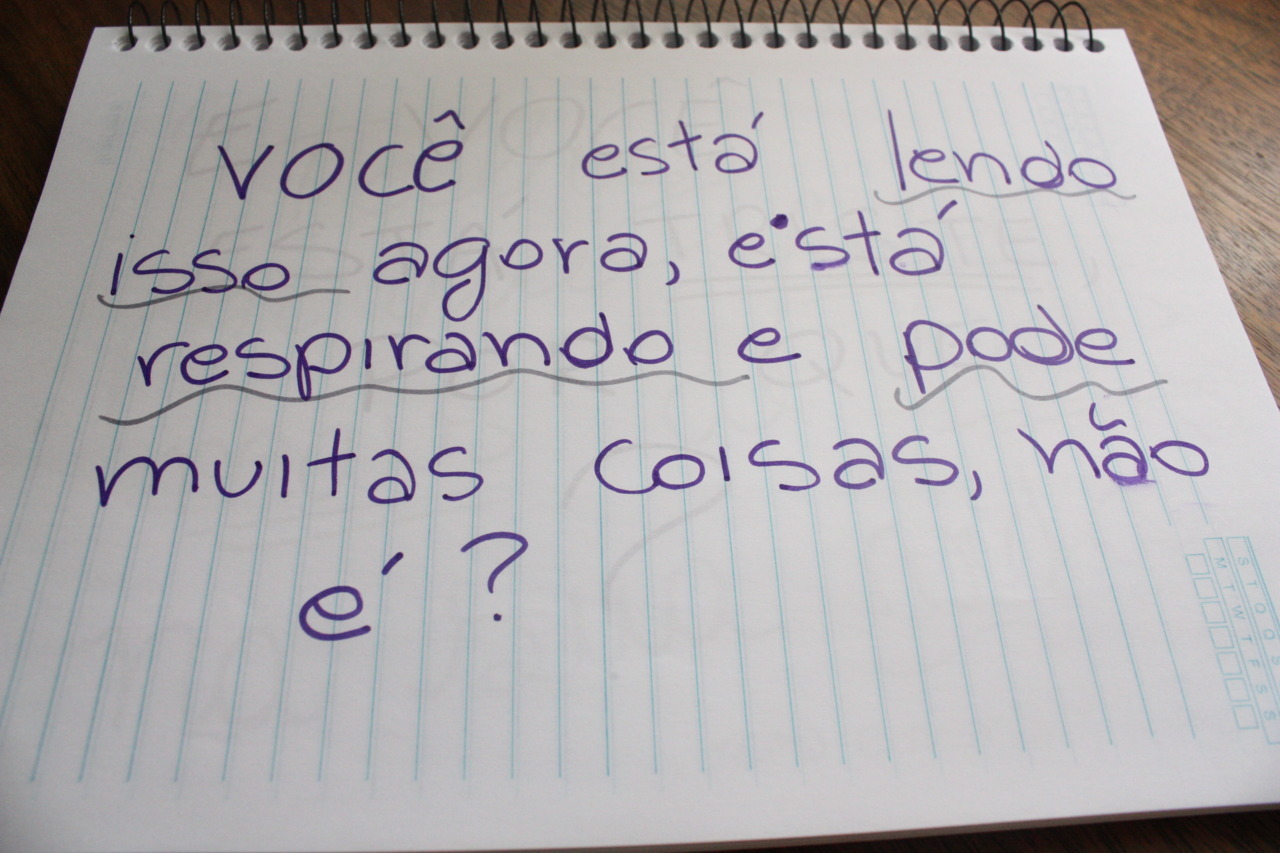 você está lendo
isso agora, está
respirando e pode
muitas coisas, não
é?
S T Q Q S S
M T W T F S S